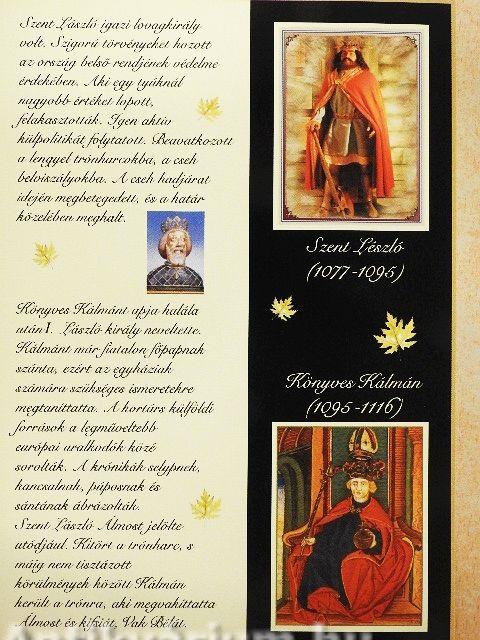 Szent László igazi lovagkirály
volt. Szigorú törvényeket hozott
az ország belső rendjének védelme
érdekében. Aki egy tyúknál
nagyobb értéket lopott,
felakasztották. Igen aktív
külpolitikát folytatott. Beavatkozott
a lengyel trónharcokba, a cseh
belviszályokba. A cseh hadjárat
idején megbetegedett, és a határ
közelében meghalt.
Könyves Kálmánt apja halála
után I. László király neveltette.
Kálmánt már fiatalon főpapnak
szánta, ezért az egyháziak
számára szükséges ismeretekre
megtaníttatta. A kortárs külföldi
források a legműveltebb
európai uralkodók közé
sorolták. A krónikák selypnek,
kancsalnak, púposnak és
sántának ábrázolták.
Szent László Álmost jelölte
utódjául. Kitört a trónharc, s
máig nem tisztázott
körülmények között Kálmán
került a trónra, aki megvakíttatta
Álmost és kisfiát, Vak Bélát.
Szent László
(1077-1095)
Könyves Kálmán
(1095-1116)